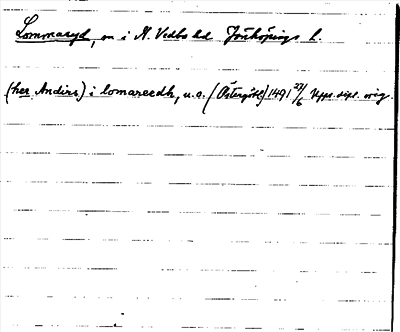 Lommaryd, sn i N. Vedbo hd Jönköpings l.
(her Anders) i lomareedh, u.o. (Östergötl) 1491 27/6 Upps. dipl. orig.